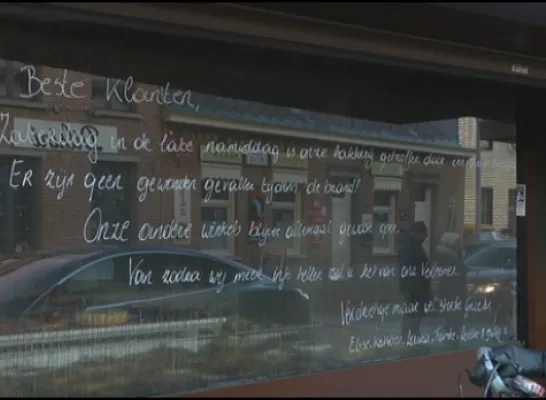 Beste Klanten,
Zaterdag in de late namiddag is onze bakkerij getroffen door een
Er zijn geen gewonden gevallen tijdens de brand!
Onze andere winkels blijven allemaal gewoon open.
Van zodra wij meer info hebben zal u het van ons vernemen.
Verdrietige maar